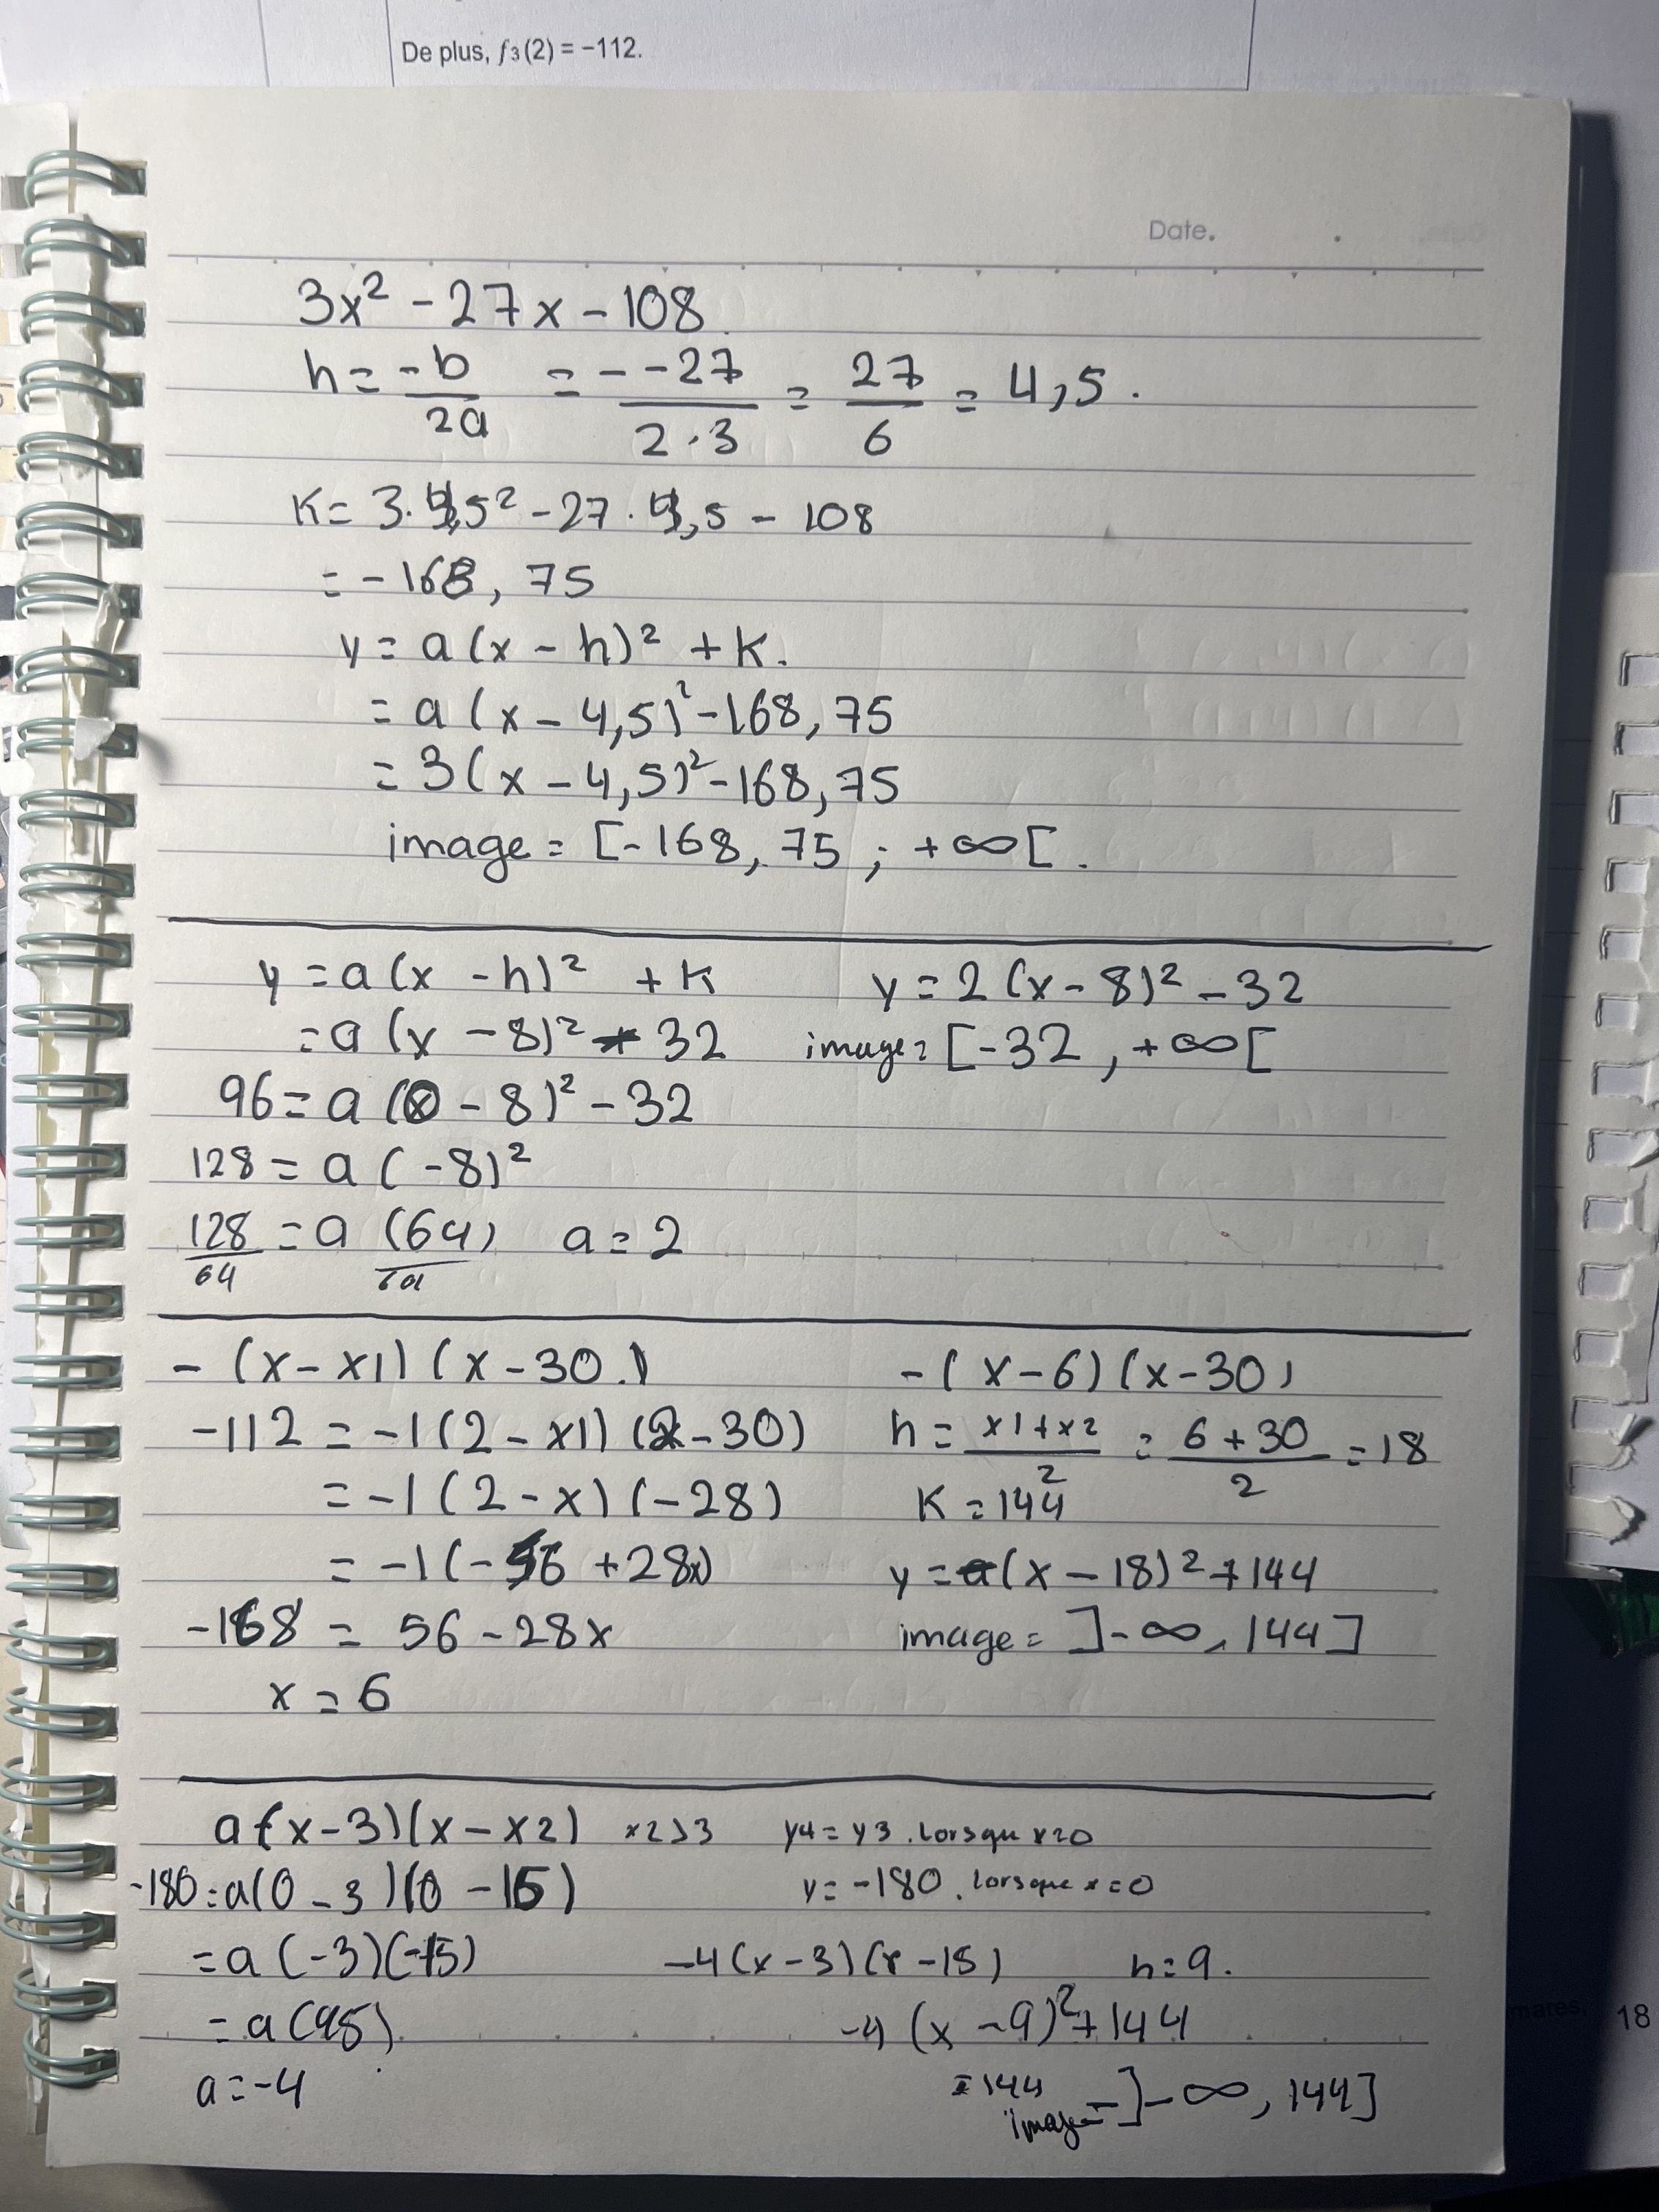 De plus, f3(2) = −112.
Date.
3x² - 27x - 108
h = -b/2a = - -27/2·3 = 27/6 = 4,5.
K = 3·4,5² - 27·4,5 - 108
= -168,75
y = a(x - h)² + K.
= a(x - 4,5)² - 168,75
= 3(x - 4,5)² - 168,75
image = [-168,75 ; +∞[.
y = a(x - h)² + K
= a(x - 8)² - 32
96 = a(0 - 8)² - 32
128 = a(-8)²
128/64 = a (64)/64 a = 2
y = 2(x - 8)² - 32
image = [-32, +∞[
- (x - x1)(x - 30)
-112 = -1(2 - x1)(2 - 30)
= -1(2 - x)(-28)
= -1(-56 + 28x)
-168 = 56 - 28x
x = 6
-(x - 6)(x - 30)
h = x1 + x2/2 = 6 + 30/2 = 18
K = 144
y = (x - 18)² + 144
image = ]-∞, 144]
a(x - 3)(x - x2) x2>3
-180 = a(0 - 3)(0 - 15)
= a(-3)(-15)
= a(45)
a = -4
y4 = y3. Lorsque x=0
y = -180. lorsque x = 0
-4(x - 3)(x - 15) h = 9.
-4(x - 9)² + 144
= 144
image = ]-∞, 144]
mares, 18